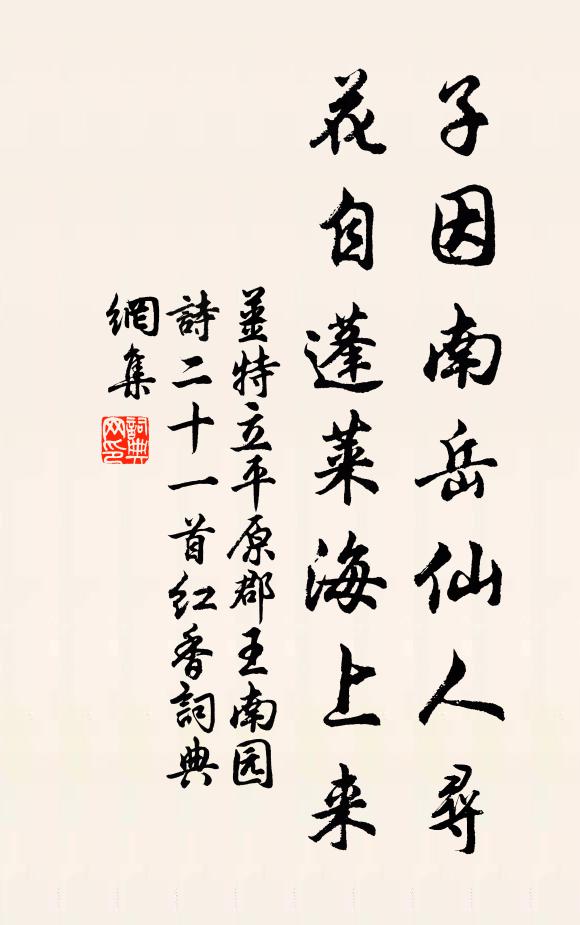 子因南岳仙人尋
花自蓬莱海上来
薑特立平原郡王南园
詩二十一首红香詞典
網集
詞典网印